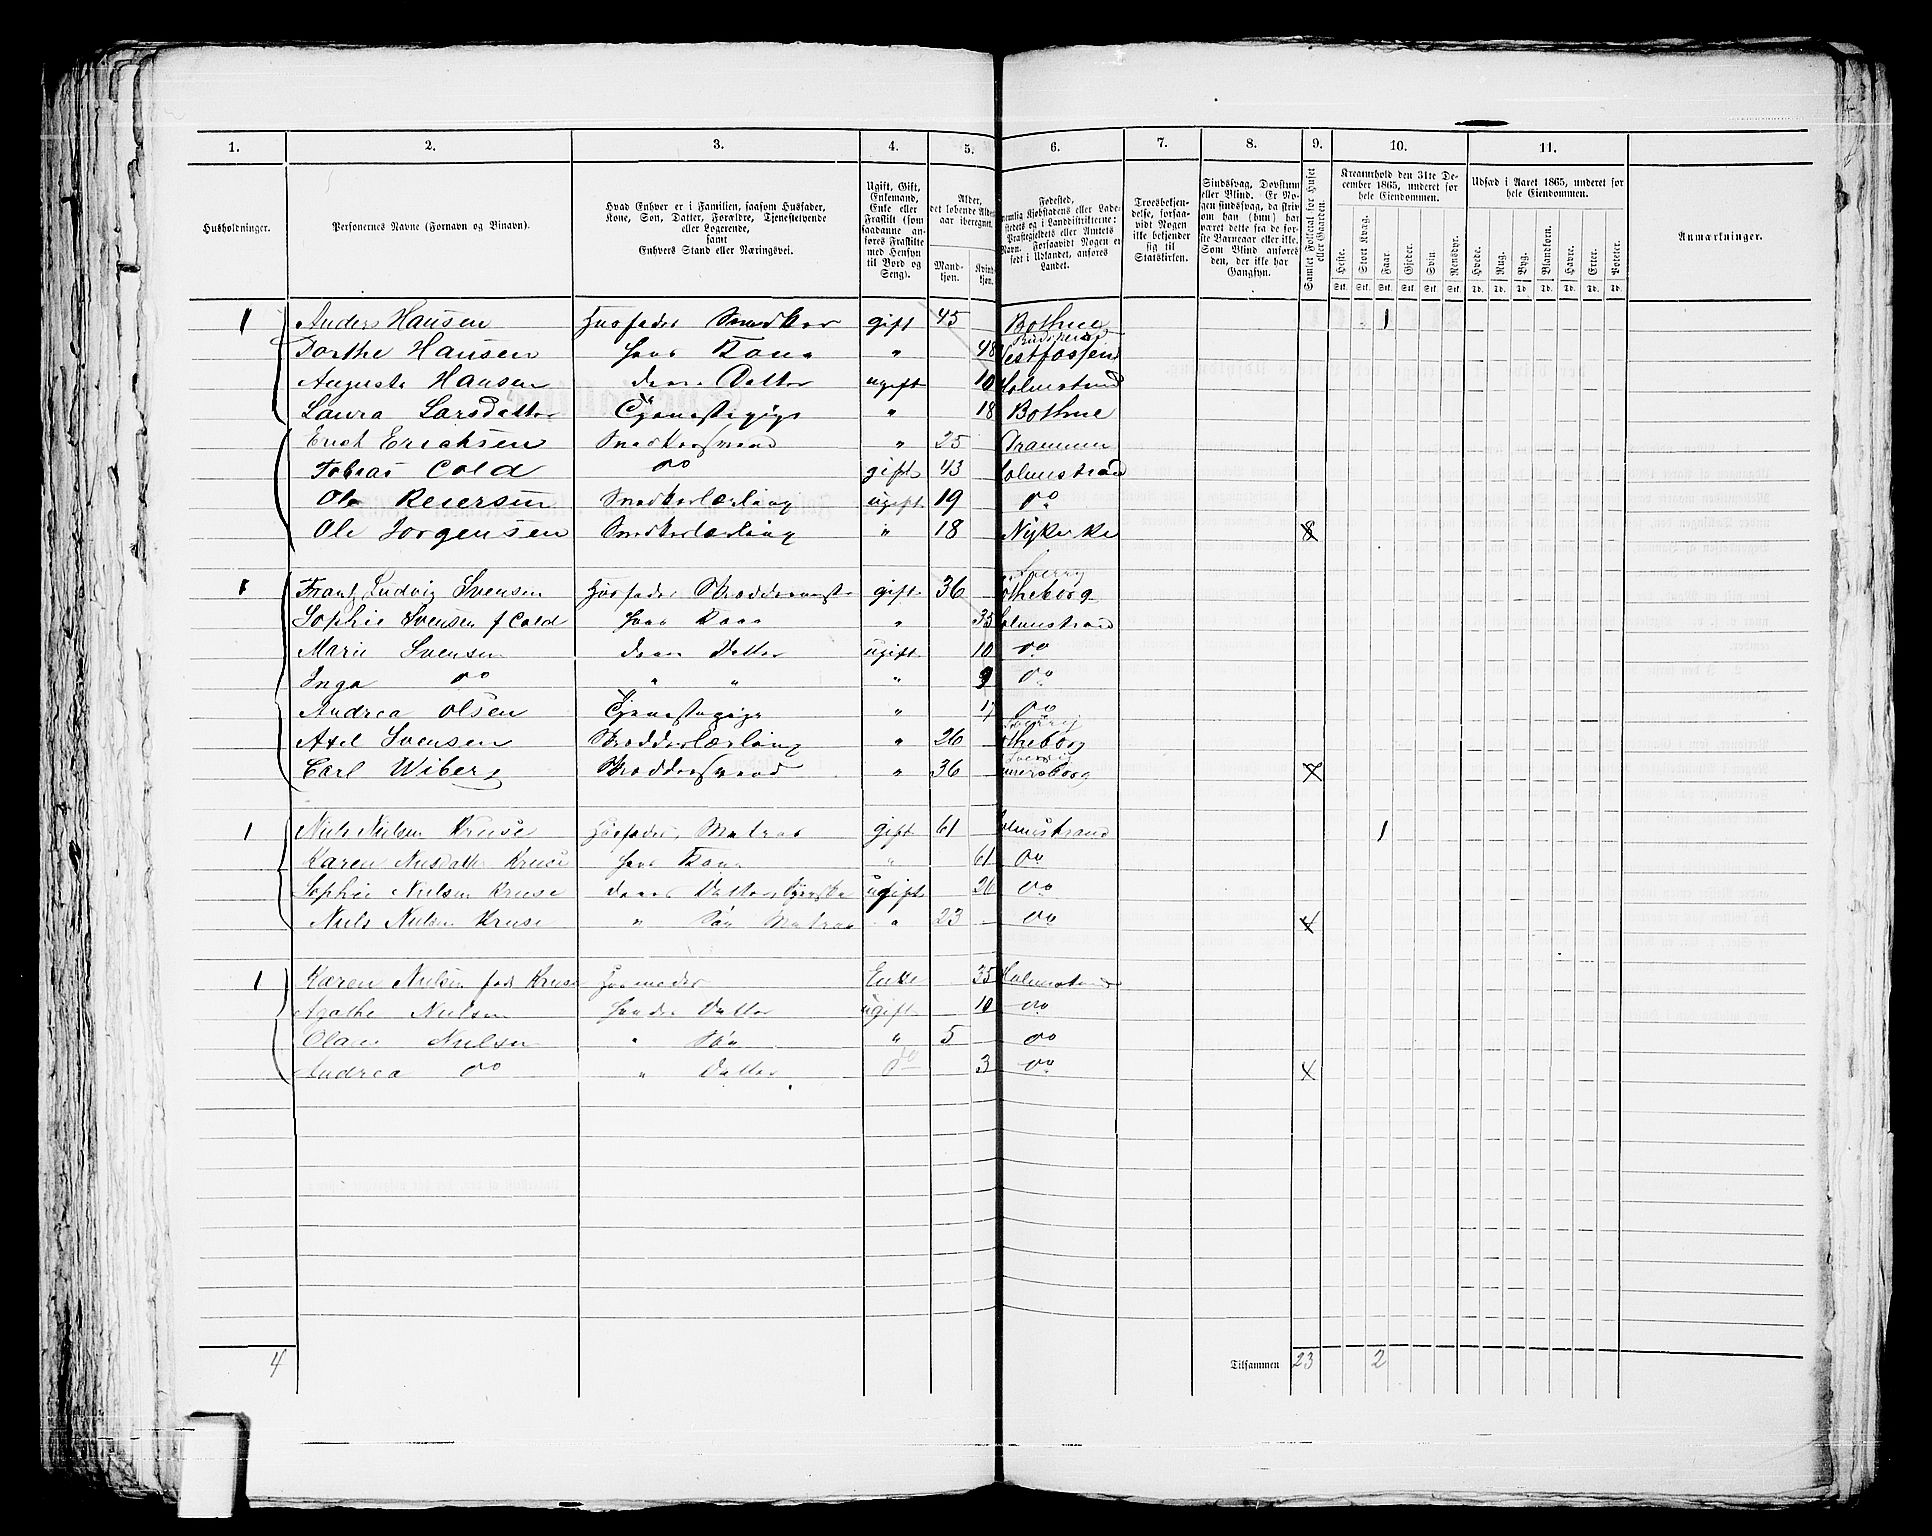 1. 2. 3. 4. 5. 6. 7. 8. 9. 10. 11.
Husholdninger.
Personernes Navne (Fornavn og Tilnavn).
Hvad Enhver er i Familien, saasom Husfader,
Kone, Søn, Datter, Forældre, Tjenestetyende
eller Logerende,
samt
Enhvers Stand eller Næringsvei.
Ugift, Gift,
Enkemand,
Enke eller
Fraskilt (som
saadanne an-
føres Fraskilte
med Hensyn
til Bord og
Seng).
Alder,
det løbende Alders-
aar iberegnet.
Mand-
kjøn.
Kvind-
kjøn.
Fødested,
nemlig Kjøbstadens eller Lade-
stedets og i Landdistrikterne:
Præstegjeldets eller Amtets
Navn.
Forsaavidt Nogen er
født i Udlandet, anføres
Landet.
Troesbekjen-
delse, forsaa-
vidt Nogen
ikke bekjender
sig til
Statskirken.
Sindssvag, Døvstum
eller Blind. Er No-
gen sindssvag, da skriv
om han (hun) har
været dette fra de før-
ste Barneaar eller ikke.
Som Blind anføres
den, der ikke har
Gangsyn.
Samlet Folketal for Huset
eller Gaarden.
Kreaturhold den 31te De-
cember 1865, underet for
hele Eiendommen.
Heste. Stort Kvæg. Faar. Gjeder. Svin. Rensdyr.
Stk. Stk. Stk. Stk. Stk. Stk.
Udsæd i Aaret 1865, underet for
hele Eiendommen.
Hvede. Rug. Byg. Blandkorn. Havre. Erter. Poteter.
Td. Td. Td. Td. Td. Td. Td.
Anmærkninger.
1 Anders Hansen Husfader Snedker gift 45 Bothne 1
Dorthe Hansen hans Kone " 48 Buskerud Vestfossen
Augusta Hansen deres Datter ugift 10 Holmstrand
Laura Larsdatter Tjenestepige " 18 Bothne
Erich Erichsen Snedkersvend " 25 Drammen
Tobias Cold do gift 43 Holmstrand
Ole Reiersen Snedkerlærling ugift 19 do
Ole Jorgensen Snedkerlærling " 18 Nykirke 8
1 Frantz Ludvig Svensen Husfader Skreddermester gift 36 Sverrig Gotheborg
Sophie Svensen f Cold hans Kone " 35 Holmstrand
Marie Svensen deres Datter ugift 10 do
Inga do " " " 9 do
Andrea Olsen Tjenestepige " 17 do
Axel Svensen Skredderlærling " 26 Sverrig Gotheborg
Carl Wiberg Skreddersvend " 36 Sverrig Wenersborg 7
1 Niels Nielsen Kruse Husfader, Matros gift 61 Holmstrand 1
Karen Nilsdatter Kruse hans Kone " 61 do
Sophie Nielsen Kruse deres Datter ugift 26 do
Niels Nielsen Kruse " Søn Matros " 23 do 4
1 Karen Nielsen fød Kruse Husmoder Enke 35 Holmstrand
Nielsen hendes Datter ugift 10 do
Nielsen " Søn " 5 do
Andrea do " Datter do 3 do 4
4 Tilsammen 23 2